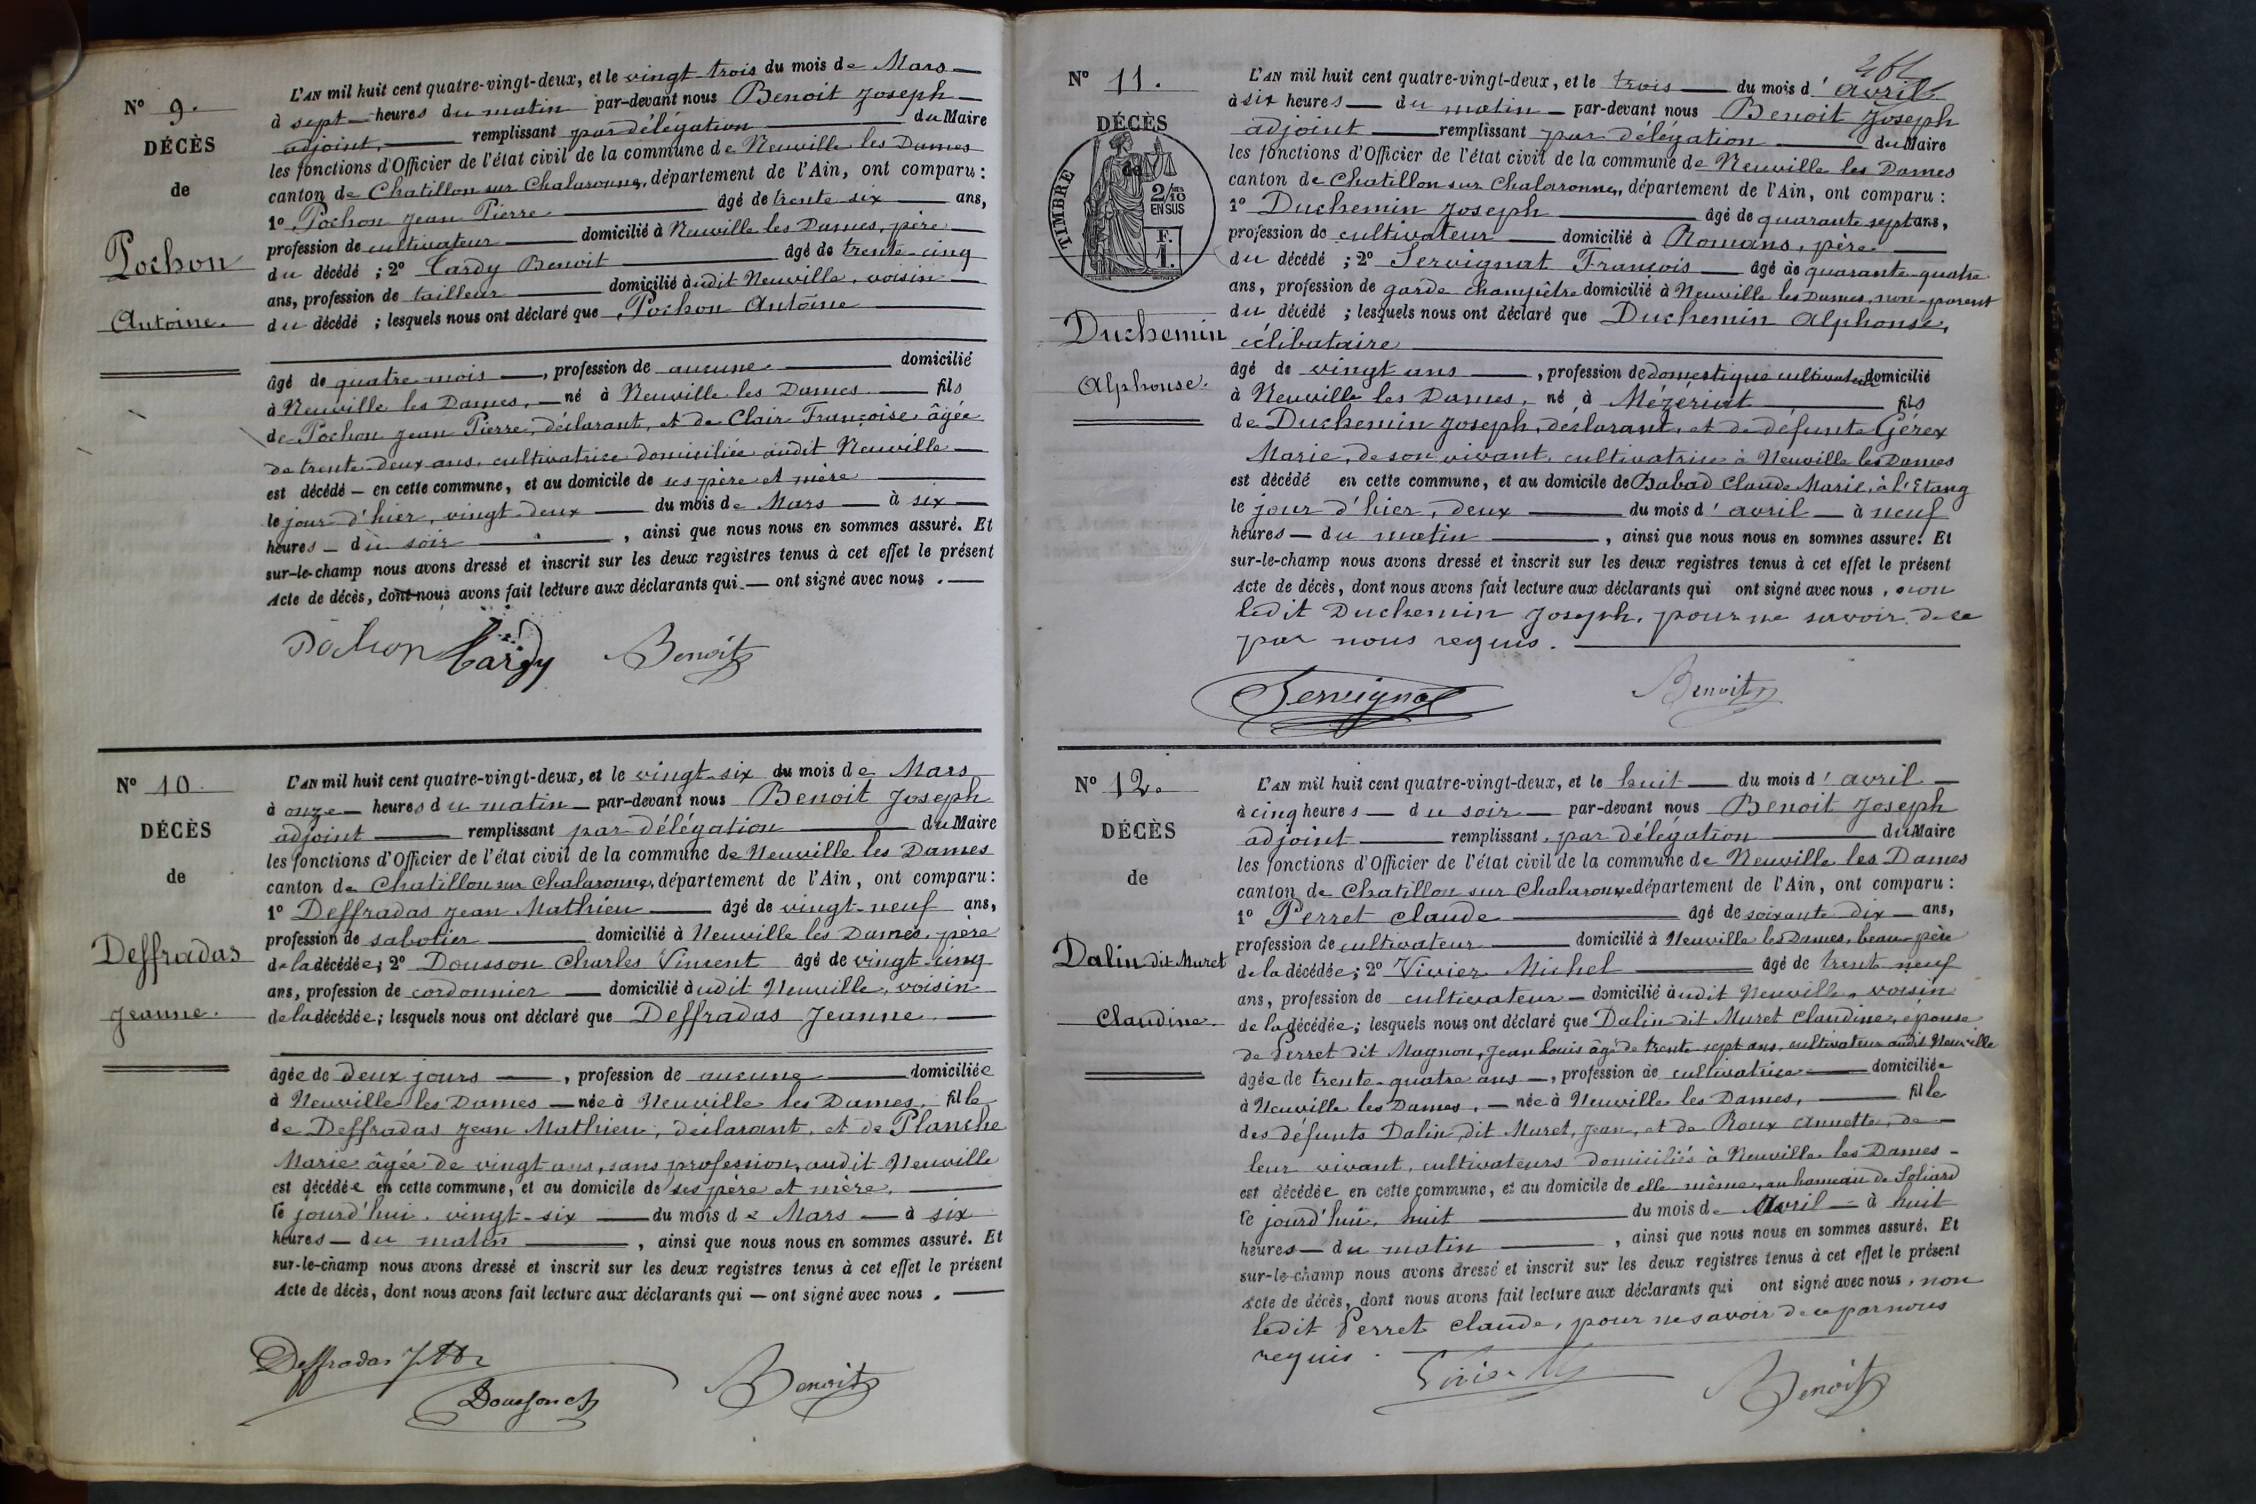 N° 9.
DÉCÈS
de
Pochon
Antoine.
L'AN mil huit cent quatre-vingt-deux, et le vingt-trois du mois de Mars
à sept heures du matin par-devant nous Benoit Joseph
adjoint, remplissant par délégation du Maire
les fonctions d'Officier de l'état civil de la commune de Neuville les Dames
canton de Chatillon sur Chalaronne, département de l'Ain, ont comparu :
1° Pochon Jean Pierre âgé de trente six ans,
profession de cultivateur domicilié à Neuville les Dames, père
du décédé ; 2° Tardy Benoit âgé de trente-cinq
ans, profession de tailleur domicilié audit Neuville, voisin
du décédé ; lesquels nous ont déclaré que Pochon Antoine
âgé de quatre mois, profession de aucune domicilié
à Neuville les Dames, né à Neuville les Dames fils
de Pochon Jean Pierre, déclarant, et de Clair Françoise âgée
de trente-deux ans, cultivatrice domiciliée audit Neuville
est décédé en cette commune, et au domicile de ses père et mère
le jour d'hier, vingt-deux du mois de Mars à six
heures du soir, ainsi que nous nous en sommes assuré. Et
sur-le-champ nous avons dressé et inscrit sur les deux registres tenus à cet effet le présent
Acte de décès, dont nous avons fait lecture aux déclarants qui ont signé avec nous.
Pochon Tardy Benoit
N° 10.
DÉCÈS
de
Deffradas
Jeanne.
L'AN mil huit cent quatre-vingt-deux, et le vingt-six du mois de Mars
à onze heures du matin par-devant nous Benoit Joseph
adjoint remplissant par délégation du Maire
les fonctions d'Officier de l'état civil de la commune de Neuville les Dames
canton de Chatillon sur Chalaronne, département de l'Ain, ont comparu :
1° Deffradas Jean Mathieu âgé de vingt-neuf ans,
profession de sabotier domicilié à Neuville les Dames, père
de la décédée ; 2° Dousson Charles Vincent âgé de vingt-cinq
ans, profession de cordonnier domicilié audit Neuville, voisin
de la décédée ; lesquels nous ont déclaré que Deffradas Jeanne
âgée de deux jours, profession de aucune domiciliée
à Neuville les Dames née à Neuville les Dames, fille
de Deffradas Jean Mathieu, déclarant, et de Planche
Marie âgée de vingt ans, sans profession, audit Neuville
est décédée en cette commune, et au domicile de ses père et mère,
le jourd'hui, vingt-six du mois de Mars à six
heures du matin, ainsi que nous nous en sommes assuré. Et
sur-le-champ nous avons dressé et inscrit sur les deux registres tenus à cet effet le présent
Acte de décès, dont nous avons fait lecture aux déclarants qui ont signé avec nous.
Deffradas
Benoit
N° 11.
DÉCÈS
de
TIMBRE
2/10 EN SUS
F. 1.
Duchemin
Alphonse.
L'AN mil huit cent quatre-vingt-deux, et le trois du mois d'avril
à six heures du matin par-devant nous Benoit Joseph
adjoint remplissant par délégation du Maire
les fonctions d'Officier de l'état civil de la commune de Neuville les Dames
canton de Chatillon sur Chalaronne, département de l'Ain, ont comparu :
1° Duchemin Joseph âgé de quarante sept ans,
profession de cultivateur domicilié à Romans, père
du décédé ; 2° Servignat François âgé de quarante-quatre
ans, profession de garde champêtre domicilié à Neuville les Dames, non-parent
du décédé ; lesquels nous ont déclaré que Duchemin Alphonse,
célibataire
âgé de vingt ans, profession de domestique cultivateur domicilié
à Neuville les Dames, né à Mézériat fils
de Duchemin Joseph, déclarant, et de défunte Gérex
Marie, de son vivant, cultivatrice à Neuville les Dames
est décédé en cette commune, et au domicile de Babad Claude Marie, à l'Etang
le jour d'hier, deux du mois d'avril à neuf
heures du matin, ainsi que nous nous en sommes assuré. Et
sur-le-champ nous avons dressé et inscrit sur les deux registres tenus à cet effet le présent
Acte de décès, dont nous avons fait lecture aux déclarants qui ont signé avec nous, non
ledit Duchemin Joseph, pour ne savoir de ce
par nous requis.
Servignat Benoit
N° 12.
DÉCÈS
de
Dalin dit Muret
Claudine.
L'AN mil huit cent quatre-vingt-deux, et le huit du mois d'avril
à cinq heures du soir par-devant nous Benoit Joseph
adjoint remplissant par délégation du Maire
les fonctions d'Officier de l'état civil de la commune de Neuville les Dames
canton de Chatillon sur Chalaronne département de l'Ain, ont comparu :
1° Perret Claude âgé de soixante dix ans,
profession de cultivateur domicilié à Neuville les Dames, beau-père
de la décédée ; 2° Vivier Michel âgé de trente-neuf
ans, profession de cultivateur domicilié audit Neuville, voisin
de la décédée ; lesquels nous ont déclaré que Dalin dit Muret Claudine, épouse
de Perret dit Magnon, Jean Louis âgé de trente sept ans, cultivateur audit Neuville
âgée de trente-quatre ans, profession de cultivatrice domiciliée
à Neuville les Dames, née à Neuville les Dames, fille
des défunts Dalin dit Muret, Jean, et de Roux Annette, de
leur vivant, cultivateurs domiciliés à Neuville les Dames
est décédée en cette commune, et au domicile de elle même, au hameau de
le jourd'hui, huit du mois de Avril à huit
heures du matin, ainsi que nous nous en sommes assuré. Et
sur-le-champ nous avons dressé et inscrit sur les deux registres tenus à cet effet le présent
Acte de décès, dont nous avons fait lecture aux déclarants qui ont signé avec nous, non
ledit Perret Claude, pour ne savoir de ce par nous
requis.
Benoit